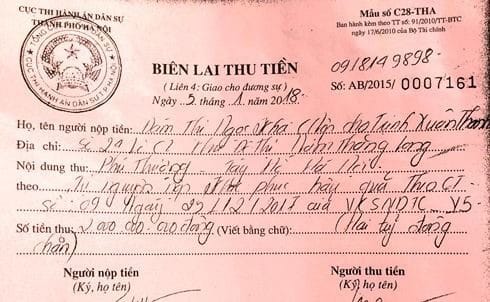 CỤC THI HÀNH ÁN DÂN SỰ
THÀNH PHỐ HÀ NỘI
Mẫu số C28-THA
Ban hành kèm theo TT số: 91/2010/TT-BTC
ngày 17/6/2010 của Bộ Tài chính
BIÊN LAI THU TIỀN
0918149898-
(Liên 4: Giao cho đương sự)
Số: AB/2015/ 0007161
Ngày 5. tháng .1. năm 2018.
Họ, tên người nộp tiền: Đàm Thị Ngọc Kha (Nộp cho Trịnh Xuân Thanh
Địa chỉ: Số 24 Khu Đô Thị Nam Thăng Long
Nội dung thu: Phú Thượng - Tây Hồ Hà Nội
theo Tự nguyện nộp phục hậu quả Theo CT
số 09 ngày 29/12/2017 của VKSNDTC V5-
Số tiền thu: 2.000.000.000 đồng (Viết bằng chữ): (Hai tỷ đồng
chẵn)
Người nộp tiền
(Ký, họ tên)
Người thu tiền
(Ký, họ tên)